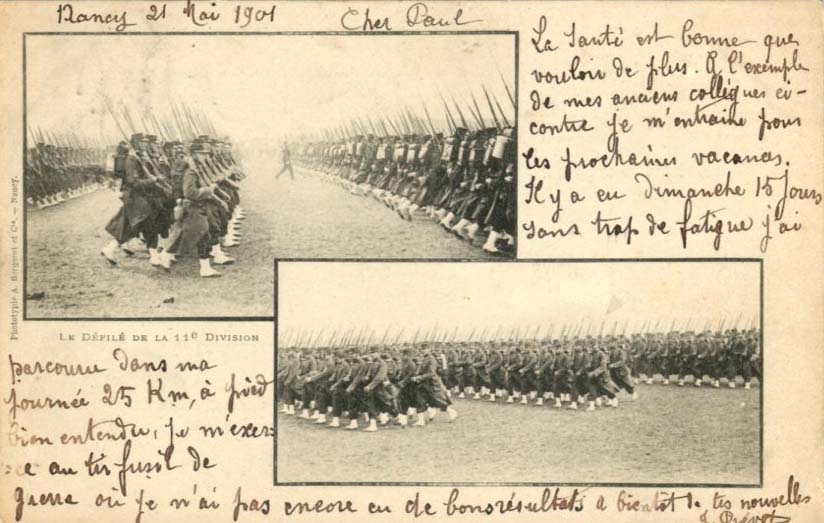 Nancy 21 Mai 1901
Cher Paul
La Santé est bonne que
vouloir de plus. A l'exemple
de mes anciens collègues ci-
contre je m'entraine pour
les prochaines vacances.
Il y a eu Dimanche 15 Jours
sans trop de fatigue j'ai
Phototypie A. Bergeret et Cie. — Nancy.
LE DÉFILÉ DE LA 11e DIVISION
parcouru dans ma
journée 25 Km, à pied
bien entendu, je m'exer-
ce au tir fusil de
guerre où je n'ai pas encore eu de bons résultats a bientôt de tes nouvelles
J Prévot